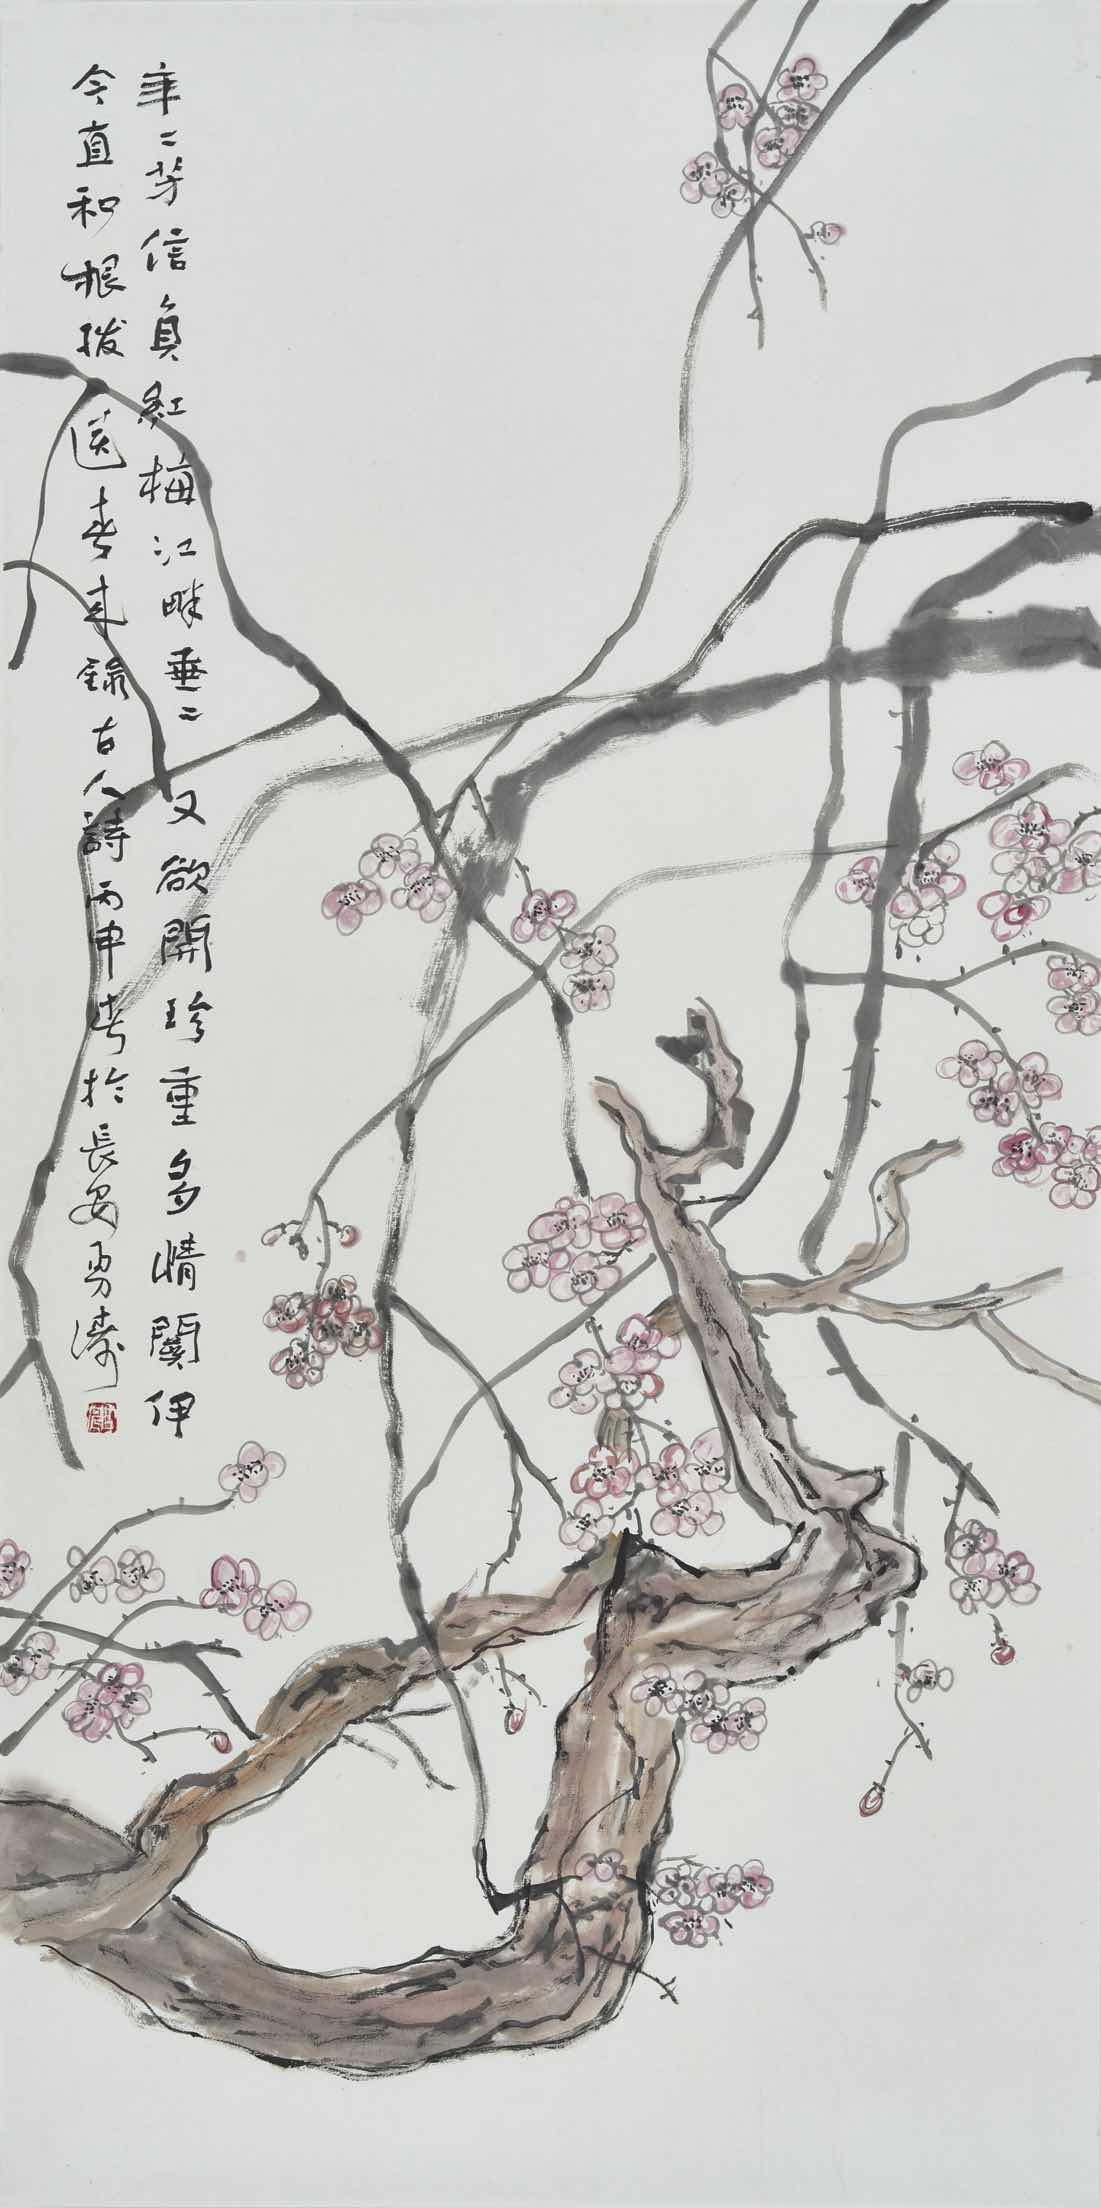 年二芳信負紅梅江畔垂二又欲開珍重多情関伊
今直和根撥送春来録古人詩丙申春於長安勇濤